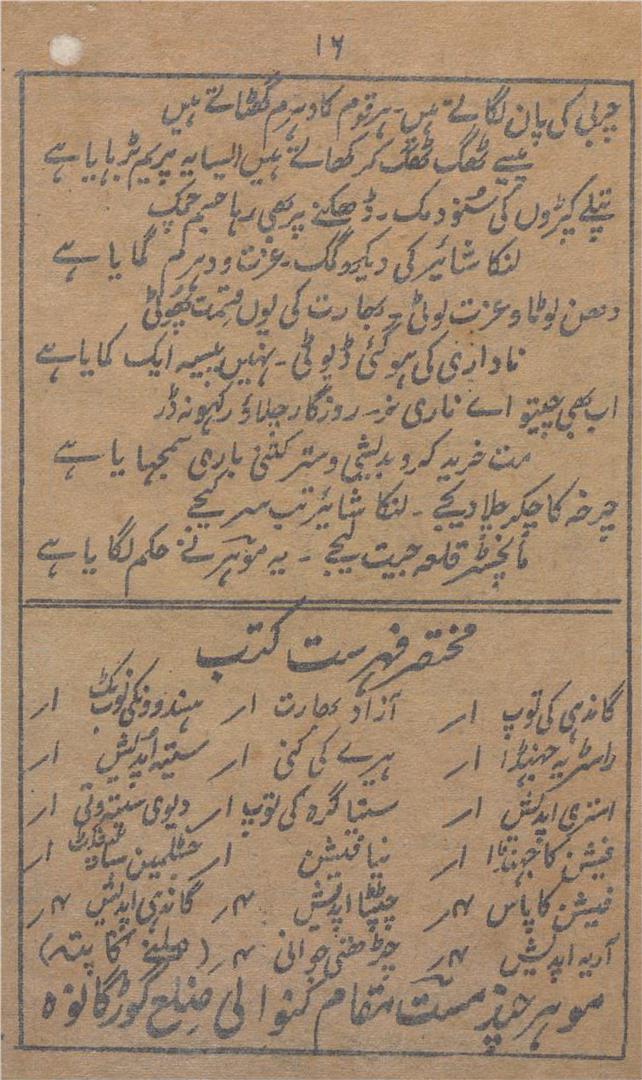 ۱۶
چربی کی پان لگاتے ہیں۔ ہر قوم کا دہرم گھٹاتے ہیں
پیسے ٹھگ ٹھگ کر کھاتے ہیں ایسا یہ پریم بڑہایا ہے
پتلے کپڑوں کی سنو دمک۔ ڈھکنے پر بھی رہا جسم چمک
لنکا شائیر کی دیکھو گمک۔ عزت و دہرم گمایا ہے
دھن لوٹا و عزت لوٹی۔ بھارت کی یوں قسمت پھوٹی
ناداری کی ہو گئی ڈیوٹی۔ نہیں پیسہ ایک کمایا ہے
اب بھی چیتو اے ناری نر۔ روزگار چلاؤ رکہو نہ ڈر
مت خرید کرو بدیشی وستر کتنی باری سمجہایا ہے
چرخہ کا چکر چلا دیجے۔ لنکا شائیر تب سر کیجے
مانچسٹر قلعہ جیت لیجے۔ یہ موہر نے حکم لگایا ہے
مختصر فہرست کتب
گاندہی کی توپ ۱ر آزاد بھارت ۱ر ہندوونکی نوبکٹ ۱ر
راسٹریہ جہنڈا ۱ر ہیرے کی کنی ۱ر ستیہ اپدیش ۱ر
استری اپدیش ۱ر ستیا گرہ کی توپ ۱ر دیوی ستیوتی ۱ر
فیشن کا جہنڈا ۱ر نیا فیشن ۱ر جنٹلمین سادہو ۱ر
فیشن کا پاس ۴ر چٹپٹا اپدیش ۴ر گاندہی اپدیش ۴ر
آریہ اپدیش ۴ر چڑھتی جوانی ۴ر (ملنے کا پتہ)
موہر چند مست مقام کنوالی ضلع گوڑگانوہ